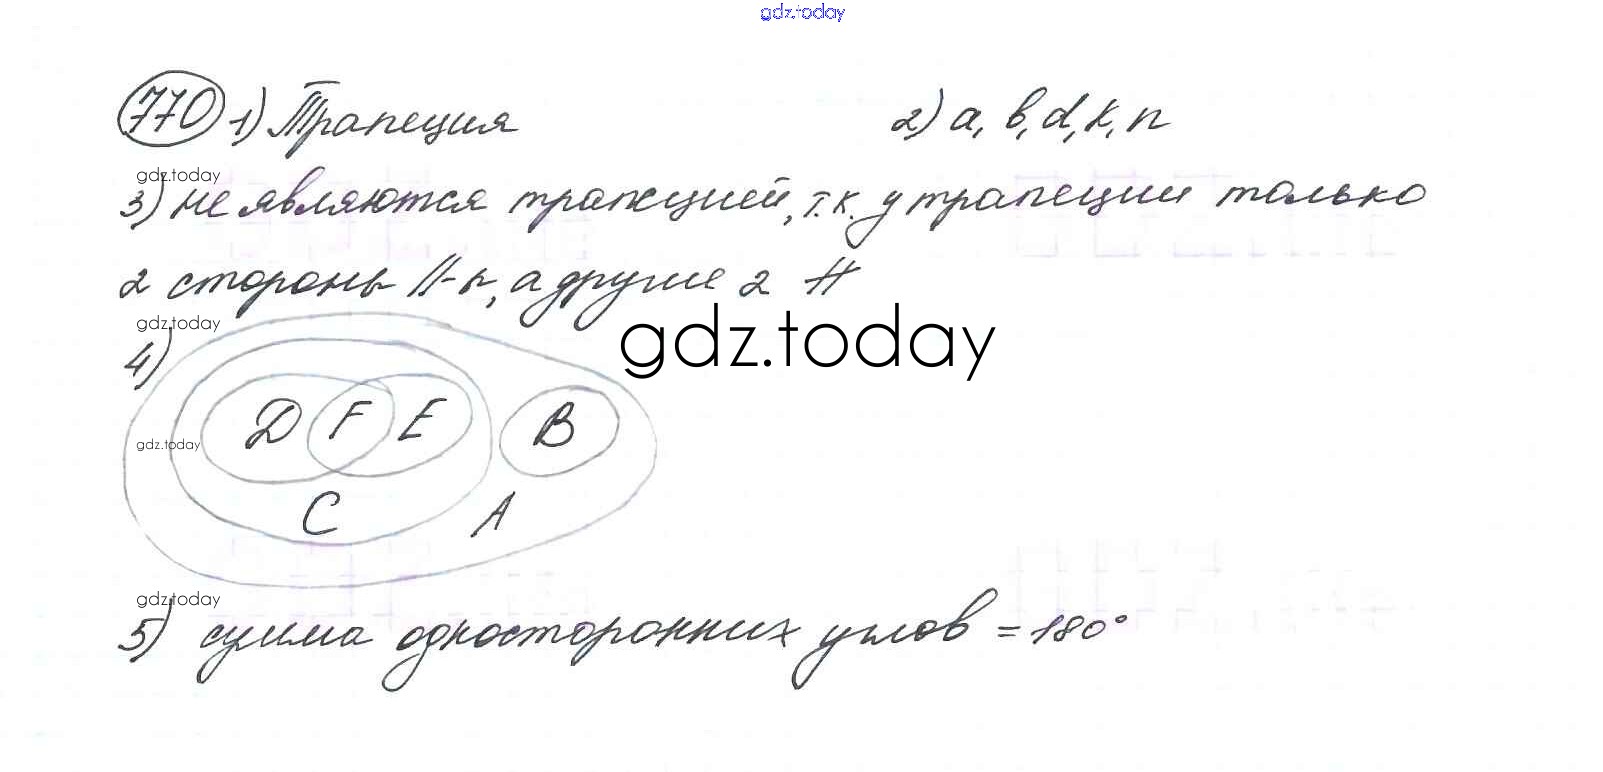 gdz.today
770 1) Трапеция 2) a, b, d, k, n
gdz.today
3) не являются трапецией, т.к. у трапеции только
2 стороны ||-ы, а другие 2 ∦
gdz.today
gdz.today
4)
D F E B
gdz.today
C A
gdz.today
5) сумма односторонних углов = 180°